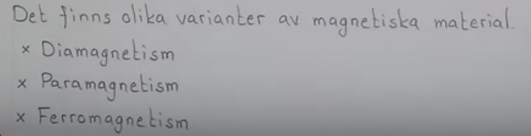 Det finns olika varianter av magnetiska material.
× Diamagnetism
× Paramagnetism
× Ferromagnetism